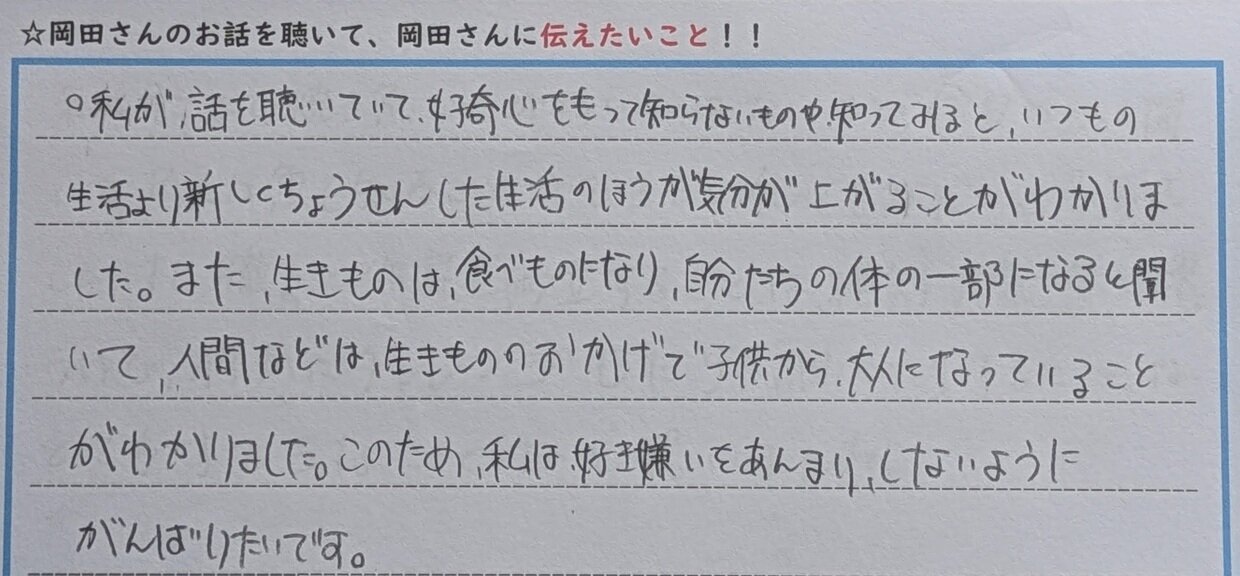 ☆岡田さんのお話を聴いて、岡田さんに伝えたいこと！！
○私が、話を聴いていて、好奇心をもって知らないものや、知ってみると、いつもの
生活より新しくちょうせんした生活のほうが気分が上がることがわかりま
した。また、生きものは、食べものになり、自分たちの体の一部になると聞
いて、人間などは、生きもののおかげで子供から、大人になっていること
がわかりました。このため、私は、好き嫌いをあんまり、しないように
がんばりたいです。